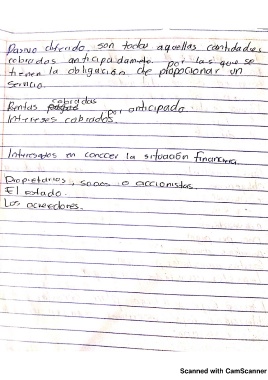 Pasivo diferido son todas aquellas cantidades
cobrados anticipadamente por las que se
tienen la obligación de propocionar un
servicio.
Rentas cobradas por anticipado
Intereses cobrados.
Interesados en conocer la situación financiera.
Propietarios, socios o accionistas
El estado.
Los acreedores.
Scanned with CamScanner